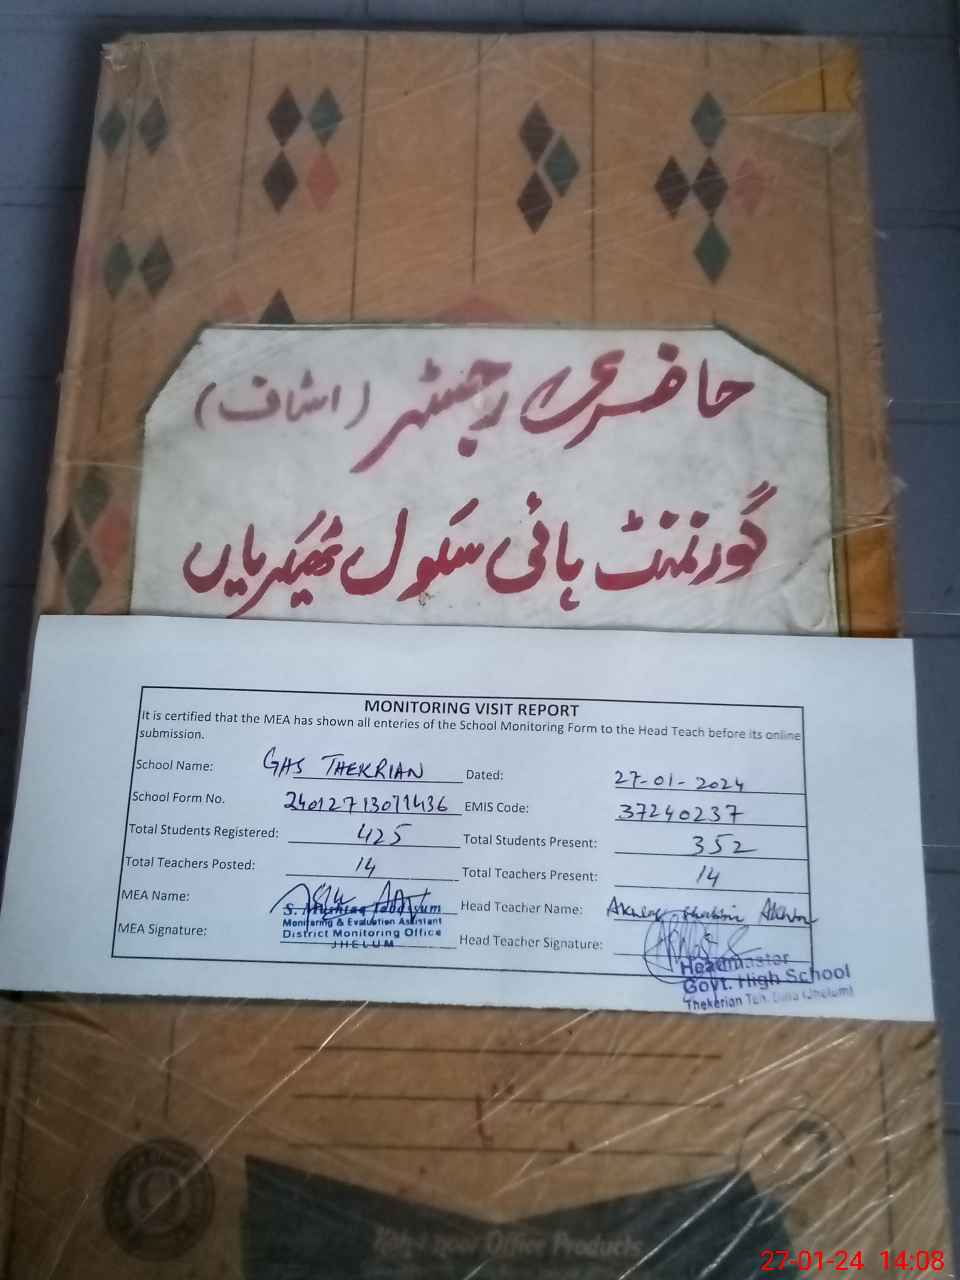 حاضری رجسٹر (اسٹاف)
گورنمنٹ ہائی سکول ٹھیکریاں
MONITORING VISIT REPORT
It is certified that the MEA has shown all enteries of the School Monitoring Form to the Head Teach before its online
submission.
School Name: GHS THEKRIAN Dated: 27-01-2024
School Form No. 24012713071436 EMIS Code: 37240237
Total Students Registered: 425 Total Students Present: 352
Total Teachers Posted: 14 Total Teachers Present: 14
MEA Name: Head Teacher Name:
S. Mushtaq
Monitoring & Evaluation Assistant
District Monitoring Office
JHELUM
MEA Signature: Head Teacher Signature:
Headmaster
Govt. High School
Thekerian Teh. Dina (Jhelum)
Office Products
27-01-24 14:08